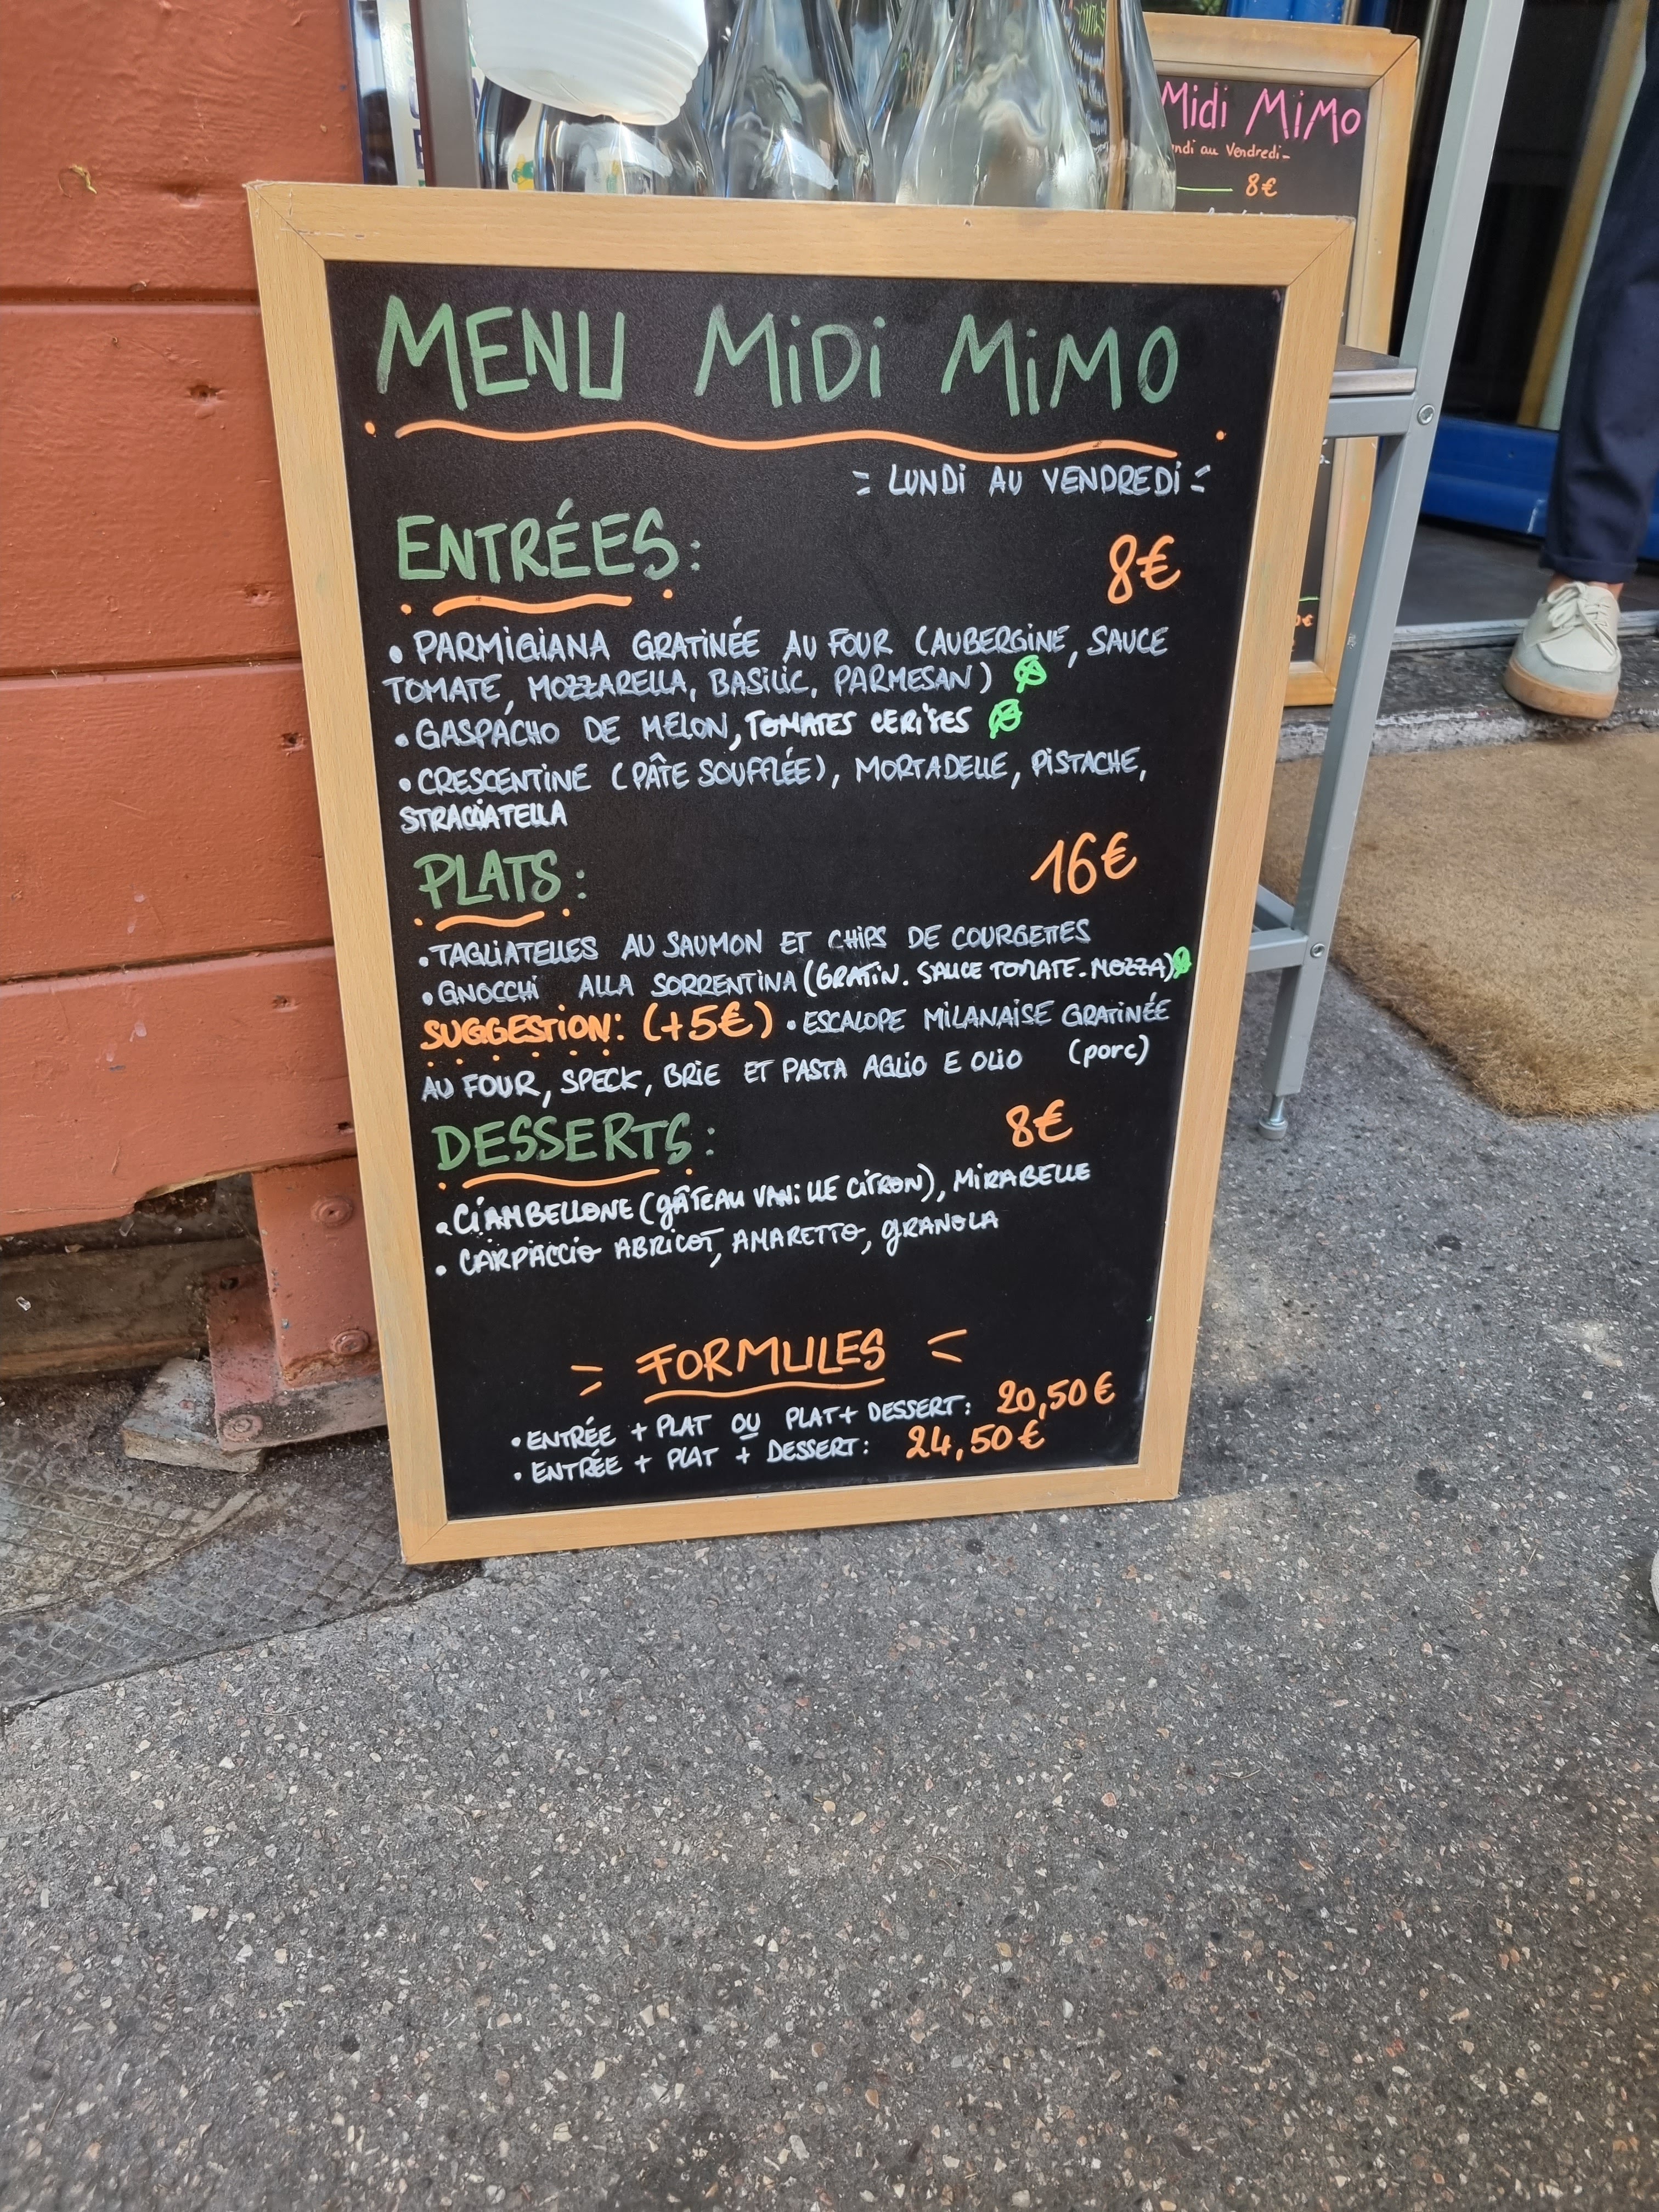 Midi MiMo
ndi au Vendredi-
8€
MENU MiDi MiMO
LUNDi AU VENDREDi
ENTRÉES:
8€
• PARMIGIANA GRATINÉE AU FOUR (AUBERGINE, SAUCE
TOMATE, MOZZARELLA, BASILIC, PARMESAN)
• GASPACHO DE MELON, TOMATES CERISES
• CRESCENTINE (PÂTE SOUFFLÉE), MORTADELLE, PISTACHE,
STRACIATELLA
PLATS:
16€
• TAGLIATELLES AU SAUMON ET CHIPS DE COURGETTES
• GNOCCHI ALLA SORRENTINA (GRATIN. SAUCE TOMATE. MOZZA)
SUGGESTION: (+5€) • ESCALOPE MILANAISE GRATINÉE
AU FOUR, SPECK, BRIE ET PASTA AGLIO E OLIO (porc)
DESSERTS:
8€
• CIAMBELLONE (GÂTEAU VANILLE CITRON), MIRABELLE
• CARPACCIO ABRICOT, AMARETTO, GRANOLA
FORMULES
• ENTRÉE + PLAT OU PLAT + DESSERT: 20,50€
• ENTRÉE + PLAT + DESSERT: 24,50€